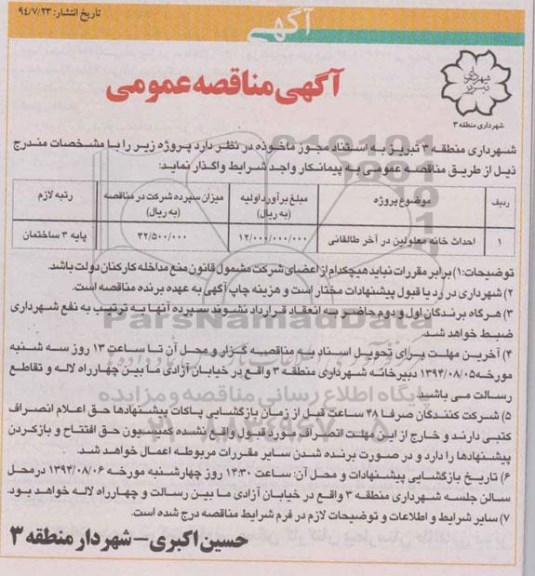 تاریخ انتشار: ۹۴/۷/۲۳
آگهی
آگهی مناقصه عمومی
شهرداری تبریز
شهرداری منطقه ۳
شهرداری منطقه ۳ تبریز به استناد مجوز ماخوذه در نظر دارد پروژه زیر را با مشخصات مندرج
ذیل از طریق مناقصه عمومی به پیمانکار واجد شرایط واگذار نماید:
ردیف موضوع پروژه مبلغ برآورد اولیه (به ریال) میزان سپرده شرکت در مناقصه (به ریال) رتبه لازم
۱ احداث خانه معلولین در آخر طالقانی ۱۲/۰۰۰/۰۰۰/۰۰۰ ۳۲/۵۰۰/۰۰۰ پایه ۳ ساختمان
توضیحات: ۱) برابر مقررات نباید هیچکدام از اعضای شرکت مشمول قانون منع مداخله کارکنان دولت باشد.
۲) شهرداری در رد یا قبول پیشنهادات مختار است و هزینه چاپ آگهی به عهده برنده مناقصه است.
۳) هرگاه برندگان اول و دوم حاضر به انعقاد قرارداد نشوند سپرده آنها به ترتیب به نفع شهرداری
ضبط خواهد شد.
۴) آخرین مهلت برای تحویل اسناد به مناقصه گزار و محل آن تا ساعت ۱۳ روز سه شنبه
مورخه ۱۳۹۴/۰۸/۰۵ دبیرخانه شهرداری منطقه ۳ واقع در خیابان آزادی ما بین چهارراه لاله و تقاطع
رسالت می باشد.
۵) شرکت کنندگان صرفا ۴۸ ساعت قبل از زمان بازگشایی پاکات پیشنهادها حق اعلام انصراف
کتبی دارند و خارج از این مهلت انصراف مورد قبول واقع نشده کمیسیون حق افتتاح و بازکردن
پیشنهادها را دارد و در صورت برنده شدن سایر مقررات مربوطه اعمال خواهد شد.
۶) تاریخ بازگشایی پیشنهادات و محل آن: ساعت ۱۴:۳۰ روز چهارشنبه مورخه ۱۳۹۴/۰۸/۰۶ در محل
سالن جلسه شهرداری منطقه ۳ واقع در خیابان آزادی ما بین رسالت و چهارراه لاله خواهد بود.
۷) سایر شرایط و اطلاعات و توضیحات لازم در فرم شرایط مناقصه درج شده است.
حسین اکبری - شهردار منطقه ۳
ParsNamadData
پایگاه اطلاع رسانی مناقصه و مزایده